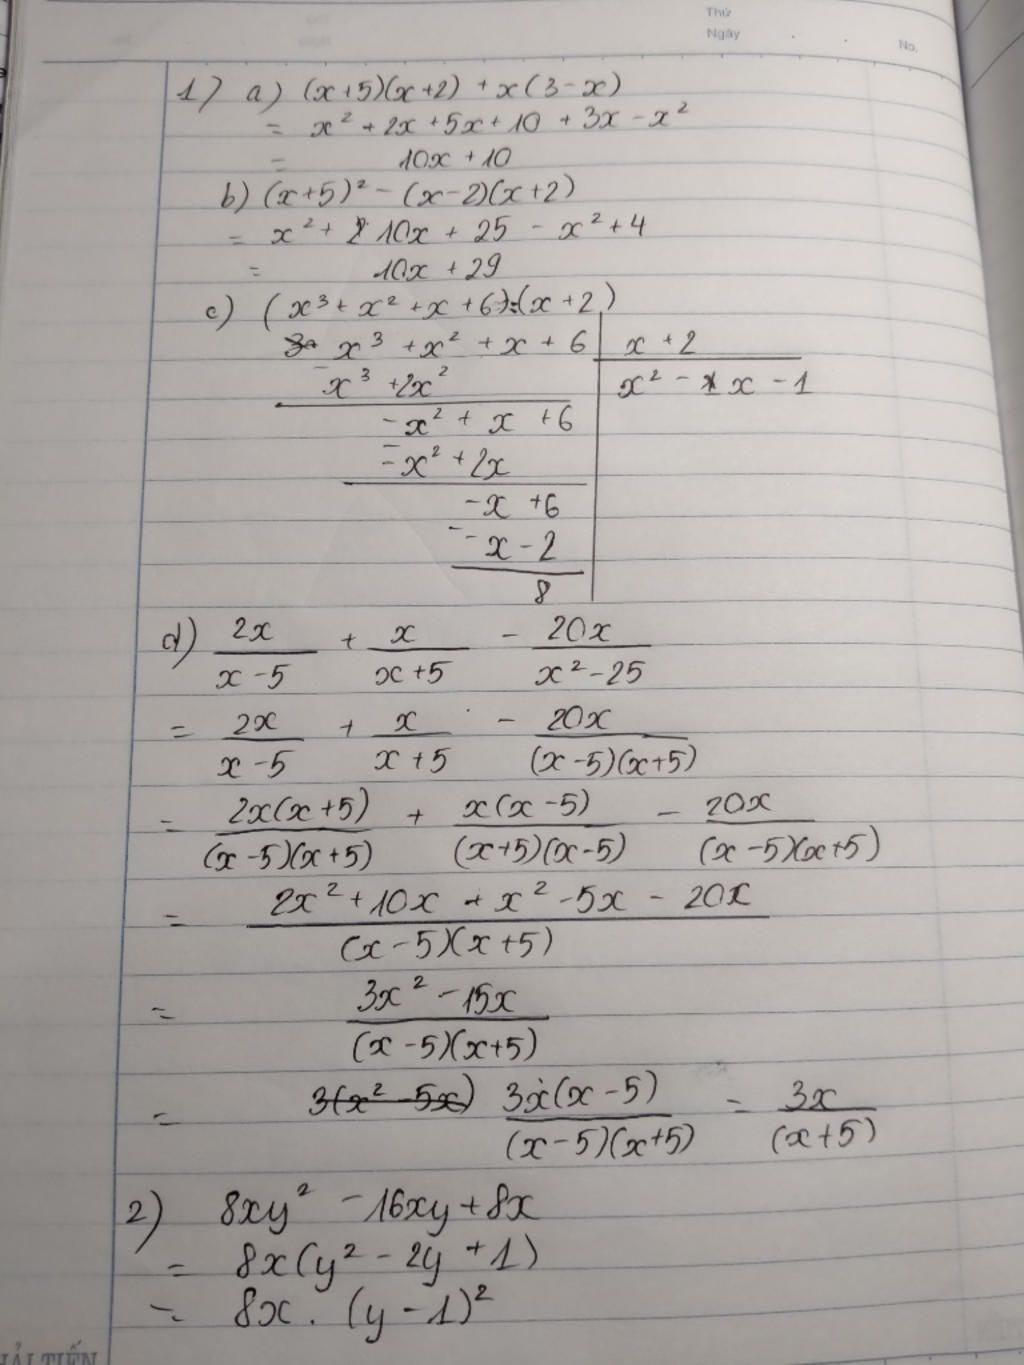 Thứ
Ngày
No.
1) a) (x+5)(x+2) + x(3-x)
= x² + 2x + 5x + 10 + 3x - x²
= 10x + 10
b) (x+5)² - (x-2)(x+2)
= x² + 10x + 25 - x² + 4
= 10x + 29
c) (x³ + x² + x + 6):(x+2)
x³ + x² + x + 6 | x + 2
- x³ + 2x² | x² - 1x - 1
-x² + x + 6
- -x² + 2x
-x + 6
- -x - 2
8
d) 2x/(x-5) + x/(x+5) - 20x/(x²-25)
= 2x/(x-5) + x/(x+5) - 20x/((x-5)(x+5))
= 2x(x+5)/((x-5)(x+5)) + x(x-5)/((x+5)(x-5)) - 20x/((x-5)(x+5))
= (2x² + 10x + x² - 5x - 20x)/((x-5)(x+5))
= (3x² - 15x)/((x-5)(x+5))
= 3(x² - 5x) 3x(x-5)/((x-5)(x+5)) = 3x/(x+5)
2) 8xy² - 16xy + 8x
= 8x(y² - 2y + 1)
= 8x . (y-1)²
HẢI TIẾN